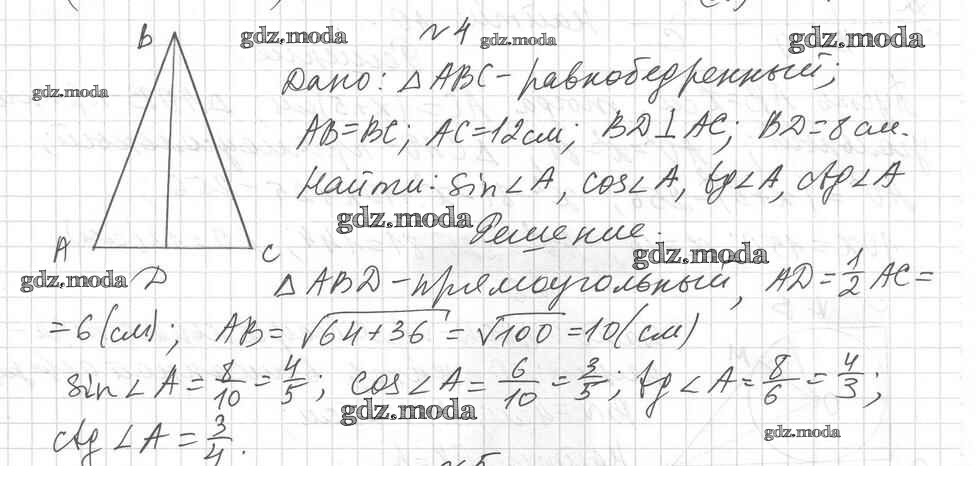 B
gdz.moda
№4
gdz.moda
gdz.moda
gdz.moda
Дано: △ABC - равнобедренный;
AB=BC; AC=12см; BD⊥AC; BD=8 см.
Найти: sin∠A, cos∠A, tg∠A, ctg∠A
gdz.moda
Решение.
gdz.moda
A
C
gdz.moda
D
△ABD - прямоугольный, AD=1/2 AC=
=6(см); AB=√64+36=√100=10(см)
sin∠A=8/10=4/5; cos∠A=6/10=3/5; tg∠A=8/6=4/3;
gdz.moda
gdz.moda
ctg∠A=3/4.